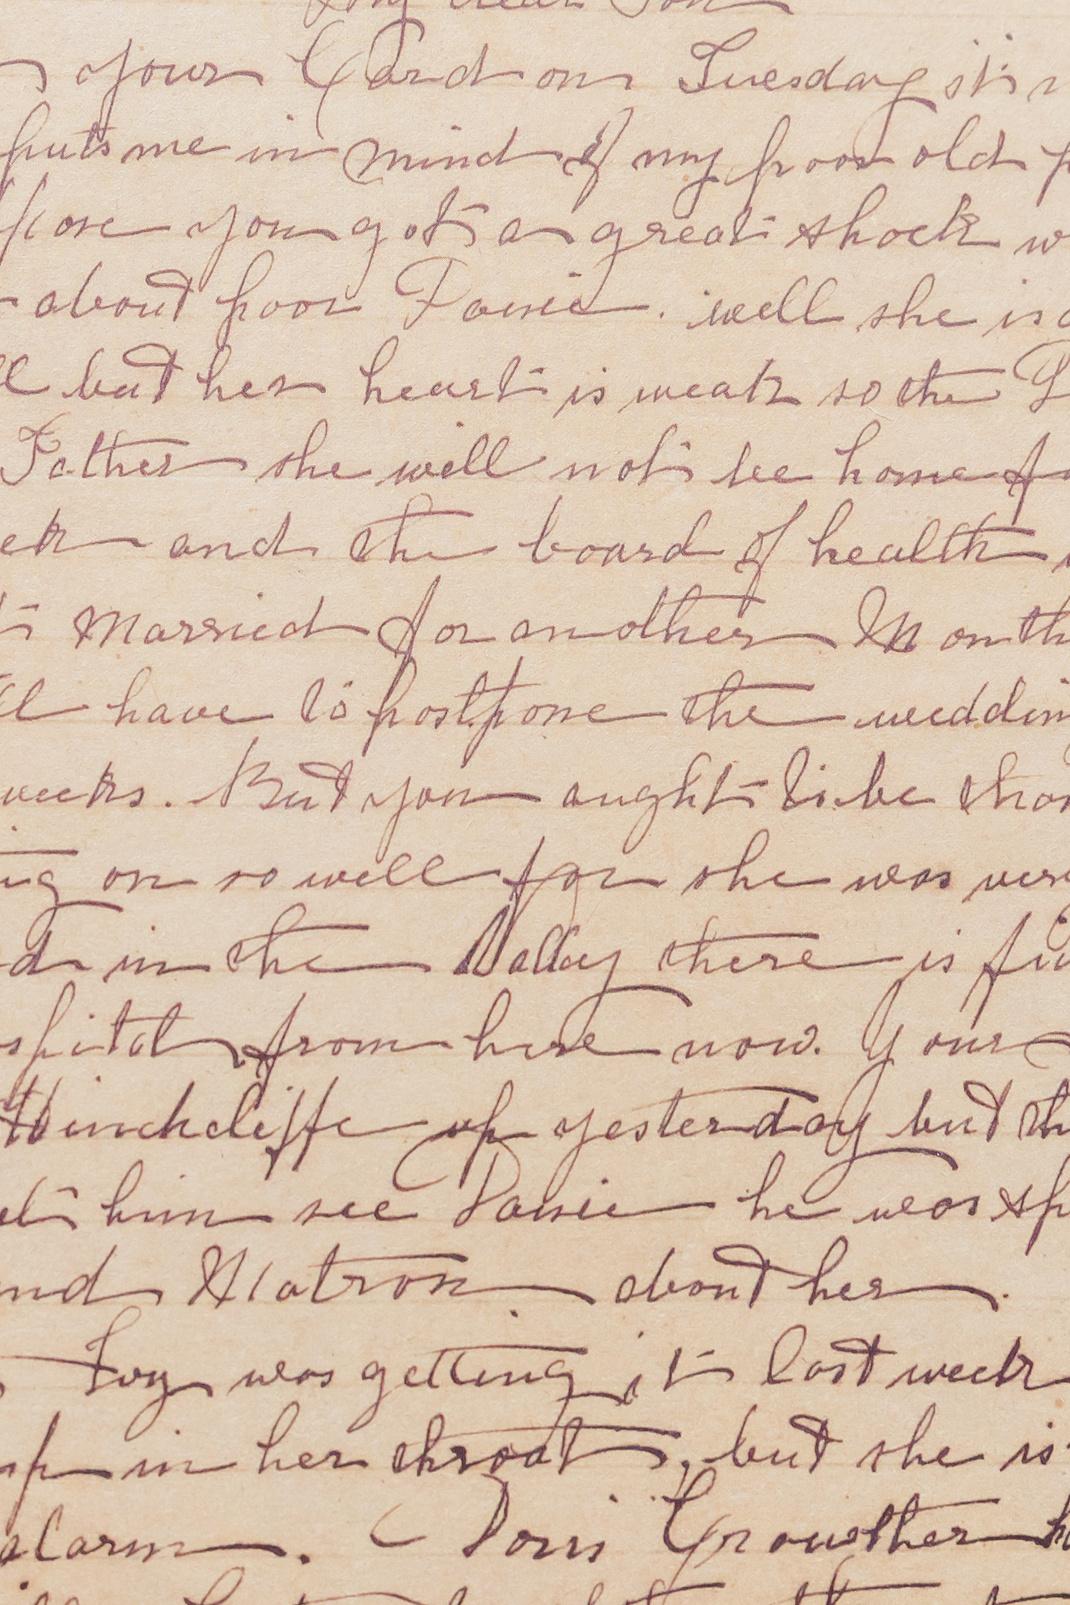 My dear Son
your Card on Tuesday it
puts me in mind of my poor old
pose you got a great shock w
about poor Janie. well she is
ll but her heart is weak so the
Father she will not be home fo
ek and the board of health
t married for another Month
ll have to postpone the weddin
weeks. But you aught to be than
ing on so well for she was very
d in the Valley there is fi
spital from here now. Your
Hinchcliffe up yesterday but th
et him see Janie he was sp
nd Matron about her.
Ivy was getting it last week
up in her throat, but she is
alarm. Doris Crowther h